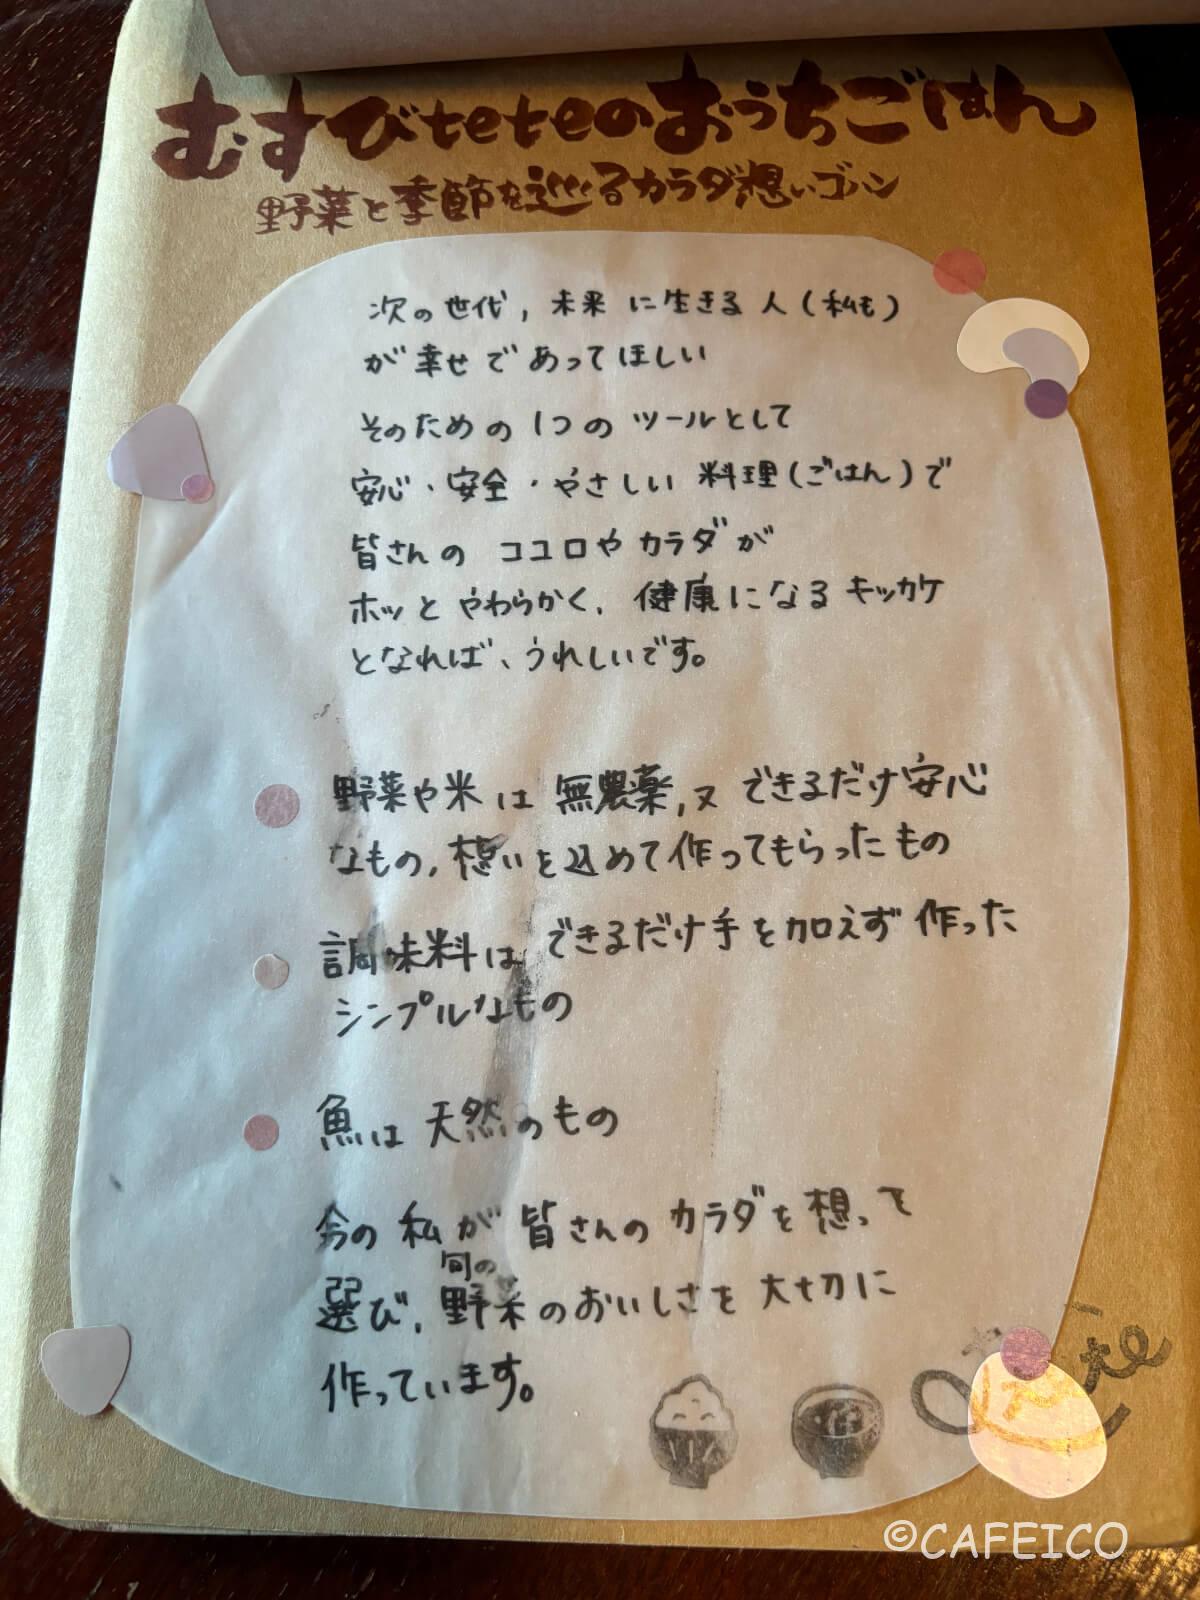 むすびteteのおうちごはん
野菜と季節を巡るカラダ想いゴハン
次の世代,未来に生きる人(私も)
が幸せであってほしい
そのための1つのツールとして
安心・安全・やさしい料理(ごはん)で
皆さんのココロやカラダが
ホッとやわらかく、健康になるキッカケ
となれば、うれしいです。
野菜や米は無農薬,又できるだけ安心
なもの,想いを込めて作ってもらったもの
調味料はできるだけ手を加えず作った
シンプルなもの
魚は天然のもの
今の私が皆さんのカラダを想って
選び,旬の野菜のおいしさを大切に
作っています。
©CAFEICO